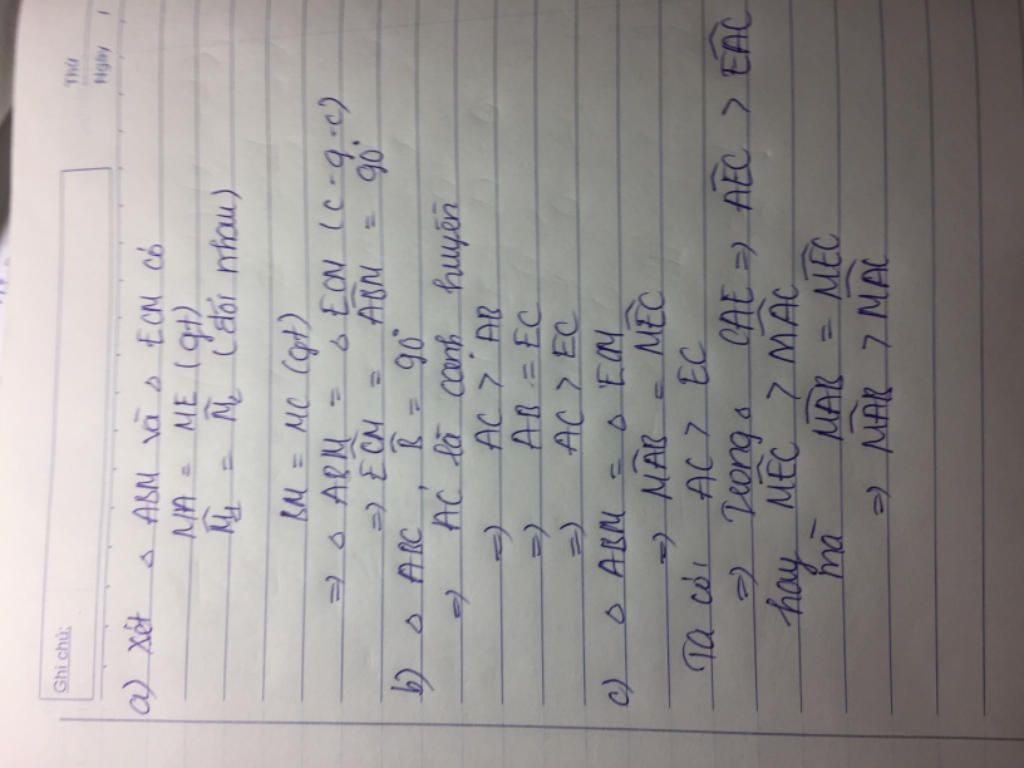 Thứ
Ngày
Ghi chú:
a) xét △ ABM và △ ECM có
MA = ME (gt)
M̂₁ = M̂₂ (đối nhau)
BM = MC (gt)
=> △ ABM = △ ECM (c-g-c)
=> ÊCM = ÂBM = 90°
b) △ ABC có B̂ = 90°
=> AC là cạnh huyền
=> AC > AB
=> AB = EC
=> AC > EC
c) △ ABM = △ ECM
=> M̂AB = M̂EC
Ta có: AC > EC
=> Trong △ CAE => ÂEC > ÊAC
hay M̂EC > M̂AC
mà M̂AB = M̂EC
=> M̂AB > M̂AC